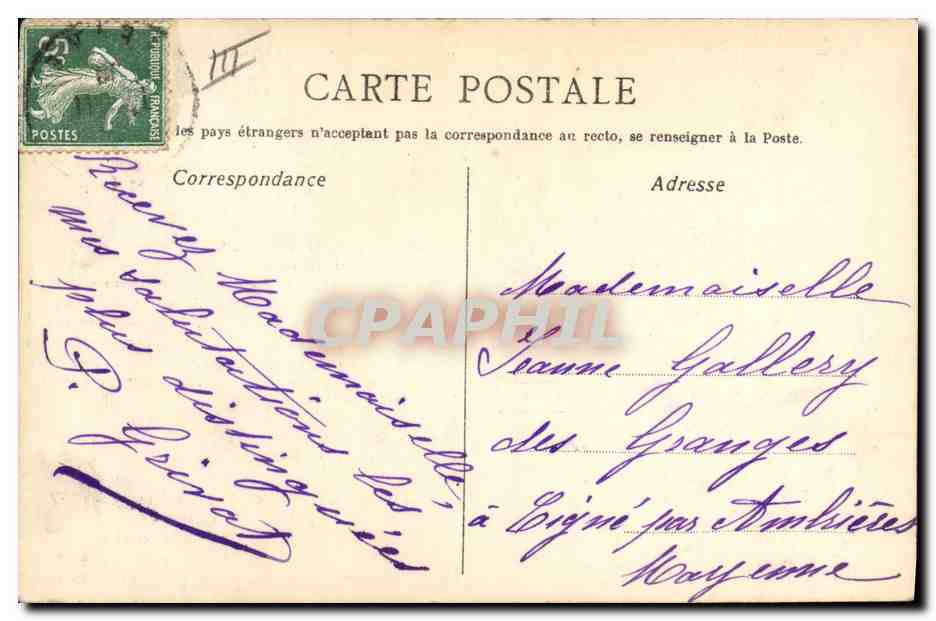 5c
REPUBLIQUE FRANÇAISE
POSTES
III
CARTE POSTALE
les pays étrangers n'acceptent pas la correspondance au recto, se renseigner à la Poste.
Correspondance
Recevez Mademoiselle,
mes salutations les
plus distinguées
P.
Adresse
Mademoiselle
Jeanne Gallery
des Granges
à Cigné par Ambrières
Mayenne
CPAPHIL